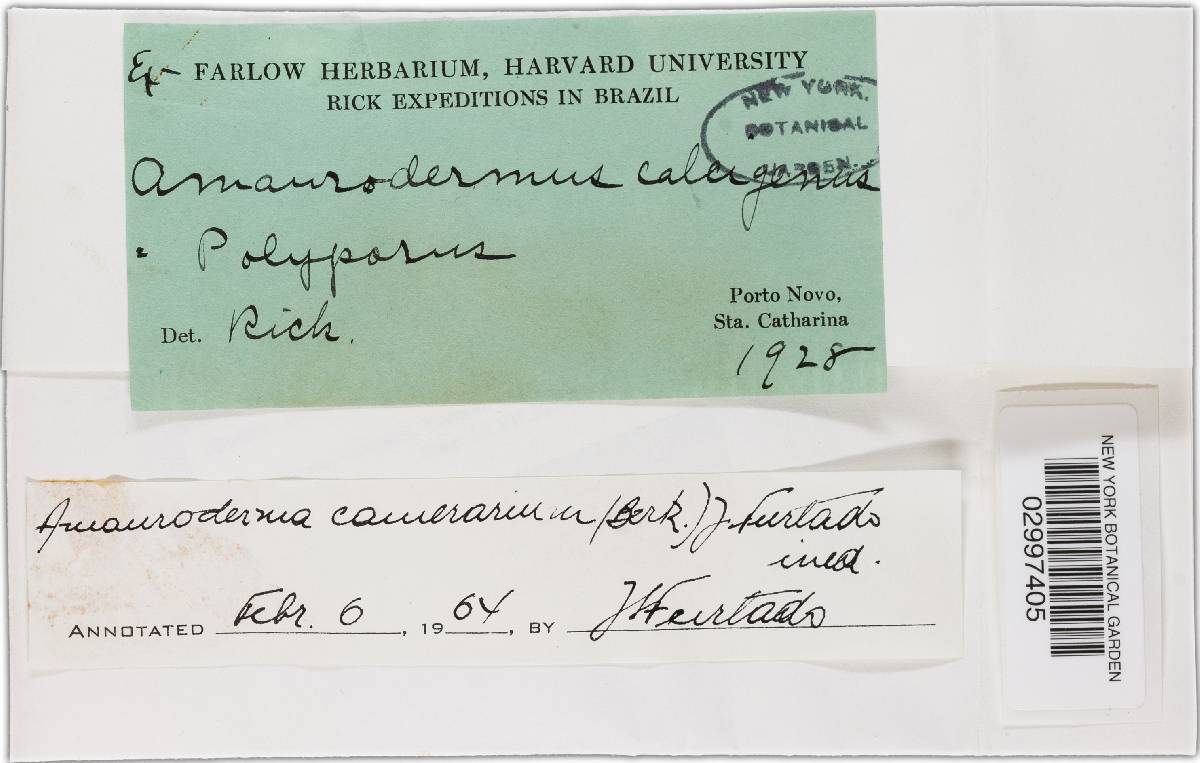 Ex- FARLOW HERBARIUM, HARVARD UNIVERSITY
RICK EXPEDITIONS IN BRAZIL
NEW YORK
BOTANICAL
GARDEN.
Amaurodermus calcigenus
" Polyporus
Det. Rick.
Porto Novo,
Sta. Catharina
1928
Amauroderma camerarium (Berk.) J. Furtado
ined.
ANNOTATED Febr. 6, 1964, BY JSFurtado
NEW YORK BOTANICAL GARDEN
02997405